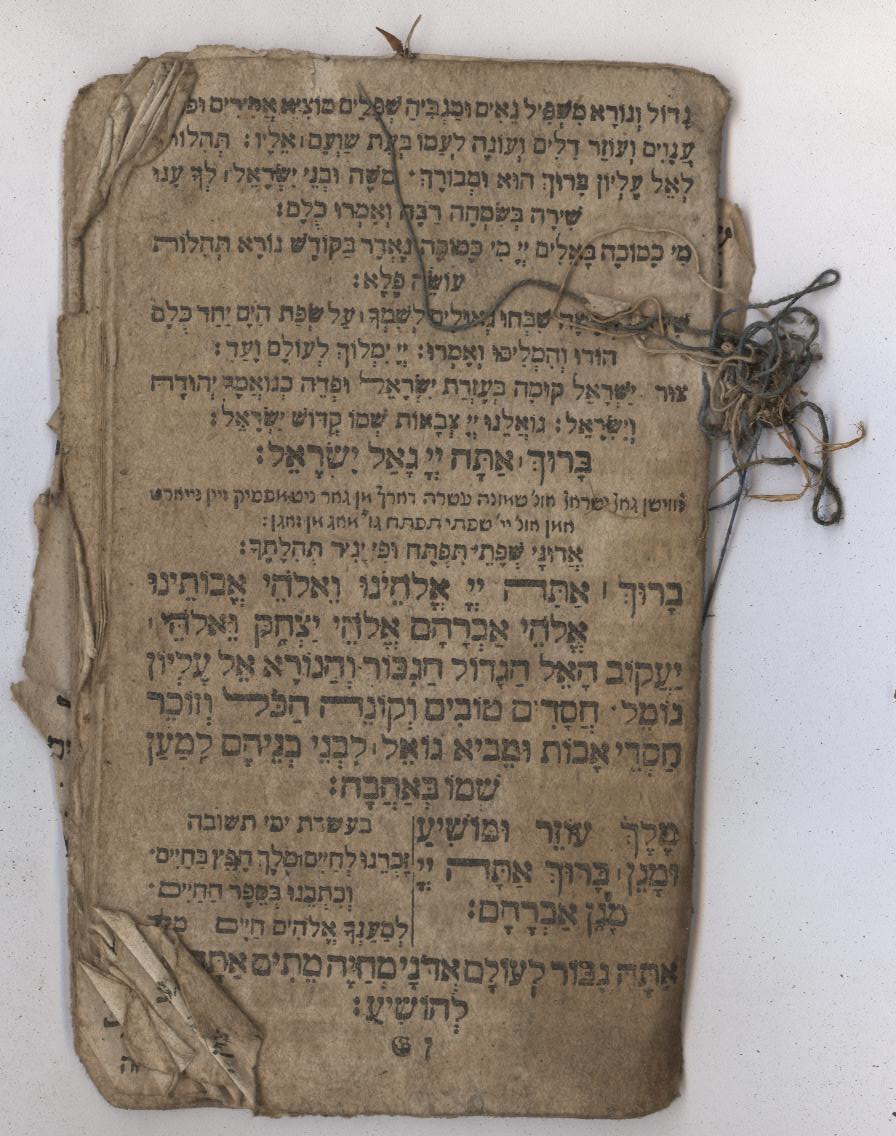 גָדוֹל וְנוֹרָא מַשְׁפִּיל גֵאִים וּמַגְבִּיהַּ שְׁפָלִים מוֹצִיא אֲסִירִים וּפ
עֲנָוִים וְעוֹזֵר דַלִים וְעוֹנֶה לְעַמוֹ בְּעֵת שַׁוְעָם אֵלָיו: תְּהִלוֹת
לְאֵל עֶלְיוֹן בָּרוּךְ הוּא וּמְבוֹרָךְ מֹשֶׁה וּבְנֵי יִשְׂרָאֵל לְךָ עָנוּ
שִׁירָה בְּשִׂמְחָה רַבָּה וְאָמְרוּ כֻלָּם:
מִי כָמוֹכָה בָּאֵלִים יְיָ מִי כָּמוֹכָה נֶאְדָר בַּקוֹדֶשׁ נוֹרָא תְהִלוֹת
עוֹשֵׂה פֶלֶא:
שִׁבְּחוּ גְאוּלִים לְשִׁמְךָ עַל שְׂפַת הַיָם יַחַד כֻּלָּם
הוֹדוּ וְהִמְלִיכוּ וְאָמְרוּ: יְיָ יִמְלוֹךְ לְעוֹלָם וָעֶד:
צוּר יִשְׂרָאֵל קוּמָה בְּעֶזְרַת יִשְׂרָאֵל וּפְדֵה כִנְאוּמֶךָ יְהוּדָה
וְיִשְׂרָאֵל: גוֹאֲלֵנוּ יְיָ צְבָאוֹת שְׁמוֹ קְדוֹשׁ יִשְׂרָאֵל:
בָּרוּךְ אַתָּה יְיָ גָאַל יִשְׂרָאֵל:
אֲדוֹנָי שְׂפָתַי תִּפְתָּח וּפִי יַגִיד תְּהִלָתֶךָ:
בָּרוּךְ אַתָּה יְיָ אֱלֹהֵינוּ וֵאלֹהֵי אֲבוֹתֵינוּ
אֱלֹהֵי אַבְרָהָם אֱלֹהֵי יִצְחָק וֵאלֹהֵי
יַעֲקוֹב הָאֵל הַגָדוֹל הַגִבּוֹר וְהַנוֹרָא אֵל עֶלְיוֹן
גוֹמֵל חֲסָדִים טוֹבִים וְקוֹנֵה הַכֹּל וְזוֹכֵר
חַסְדֵי אָבוֹת וּמֵבִיא גוֹאֵל לִבְנֵי בְנֵיהֶם לְמַעַן
שְׁמוֹ בְּאַהֲבָה:
מֶלֶךְ עוֹזֵר וּמוֹשִׁיעַ
וּמָגֵן בָּרוּךְ אַתָּה יְיָ
מָגֵן אַבְרָהָם:
בעשרת ימי תשובה
זָכְרֵנוּ לְחַיִים מֶלֶךְ חָפֵץ בַּחַיִים
וְכָתְבֵנוּ בְּסֵפֶר הַחַיִים
לְמַעַנְךָ אֱלֹהִים חַיִים
אַתָּה גִבּוֹר לְעוֹלָם אֲדֹנָי מְחַיֵה מֵתִים אַתָּה
לְהוֹשִׁיעַ: